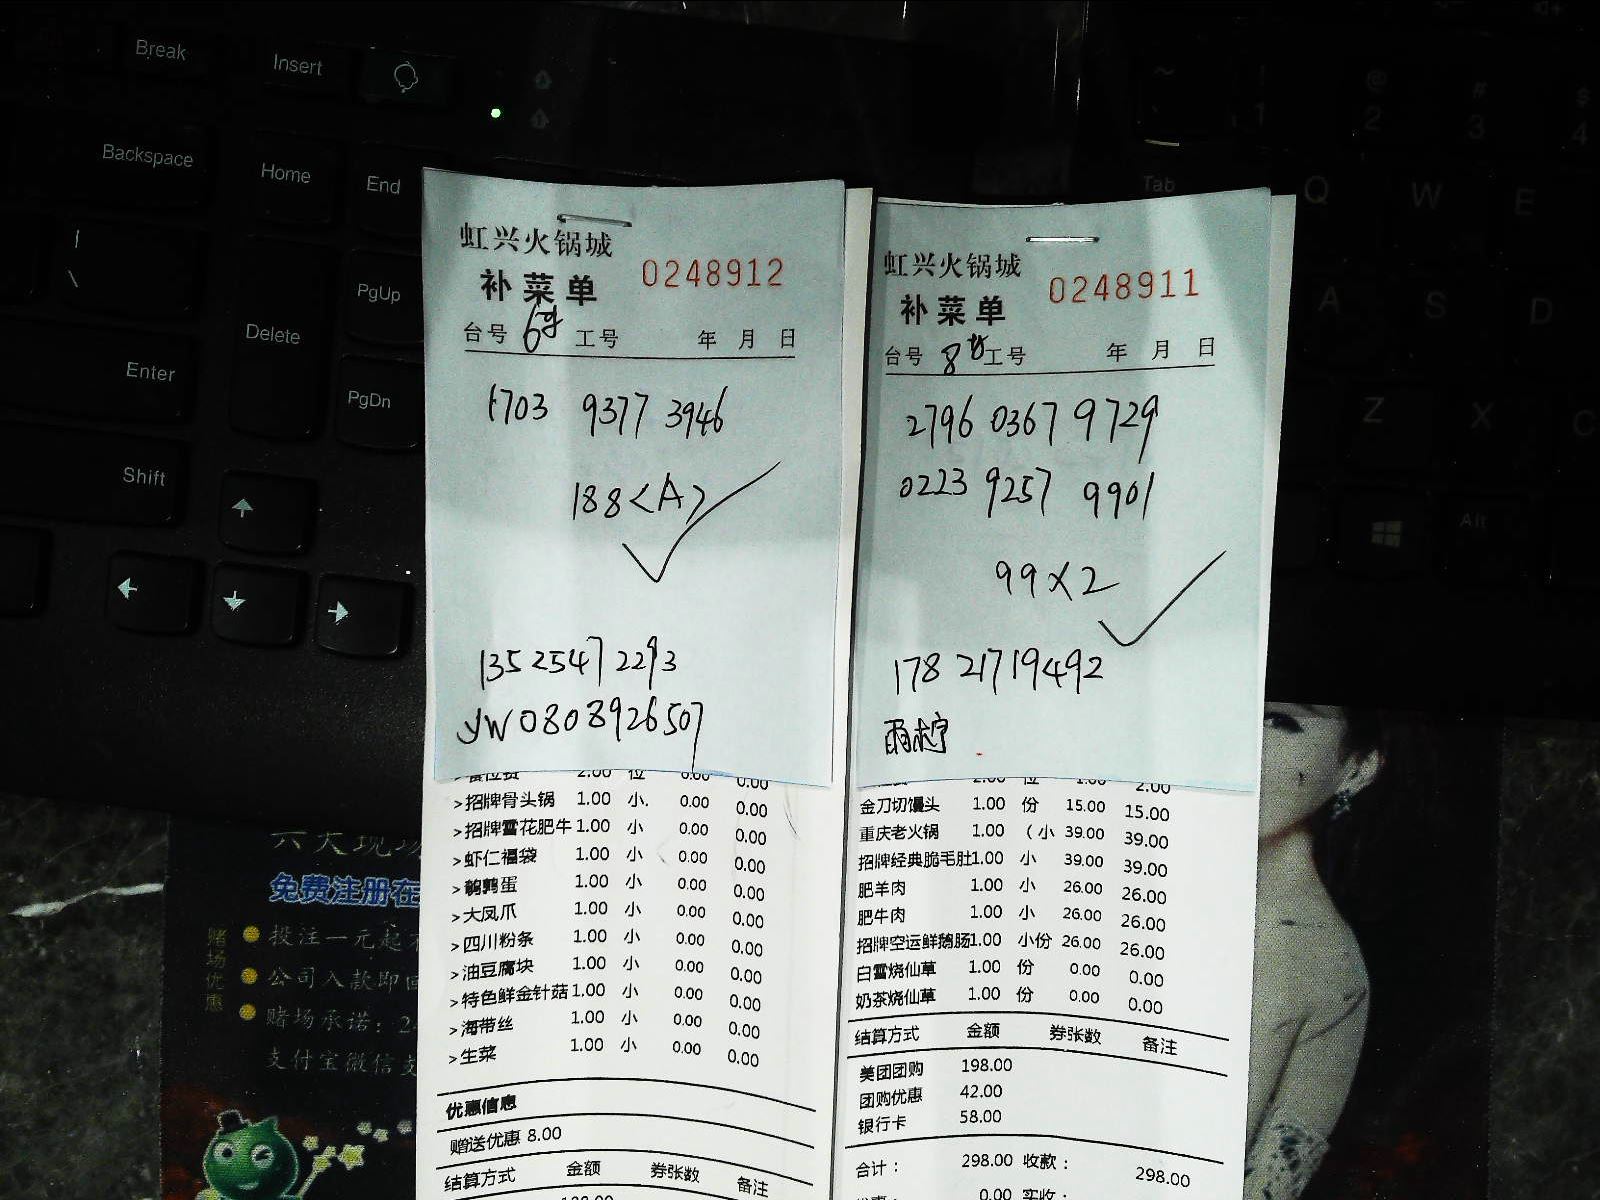 Break
Insert
Backspace
Home
End
PgUp
Delete
Enter
PgDn
Shift
虹兴火锅城
补菜单
0248912
台号 6号 工号 年 月 日
1703 9377 3946
188<A>
135 2547 2293
YW0808926507
招牌骨头锅 1.00 小. 0.00 0.00
>招牌雪花肥牛 1.00 小 0.00 0.00
>虾仁福袋 1.00 小 0.00 0.00
>鹌鹑蛋 1.00 小 0.00 0.00
>大凤爪 1.00 小 0.00 0.00
>四川粉条 1.00 小 0.00 0.00
>油豆腐块 1.00 小 0.00 0.00
>特色鲜金针菇 1.00 小 0.00 0.00
>海带丝 1.00 小 0.00 0.00
>生菜 1.00 小 0.00 0.00
优惠信息
赠送优惠 8.00
结算方式 金额 券张数 备注
虹兴火锅城
补菜单
0248911
台号 8号 工号 年 月 日
2796 0367 9729
0223 9257 9901
99×2
178 21719492
金刀切馒头 1.00 份 15.00 15.00
重庆老火锅 1.00 （小 39.00 39.00
招牌经典脆毛肚1.00 小 39.00 39.00
肥羊肉 1.00 小 26.00 26.00
肥牛肉 1.00 小 26.00 26.00
招牌空运鲜鹅肠1.00 小份 26.00 26.00
白雪烧仙草 1.00 份 0.00 0.00
奶茶烧仙草 1.00 份 0.00 0.00
结算方式 金额 券张数 备注
美团团购 198.00
团购优惠 42.00
银行卡 58.00
合计： 298.00 收款： 298.00
0.00 实收：
Tab
Q W E
A S D
Z X C
Alt
2 3 4
免费注册在
赌场优惠
投注一元起
公司入款即
赌场承诺：2
支付宝微信支